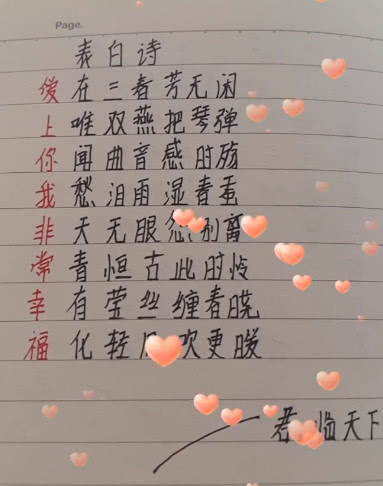 Page.
表白诗
爱在三春芳无闲
上唯双燕把琴弹
你闻曲音感时殇
我愁泪雨湿春蚕
非天无眼怨别离
常青恒古此时怜
幸有莹丝缠春晓
福化轻风吹更暖
君临天下